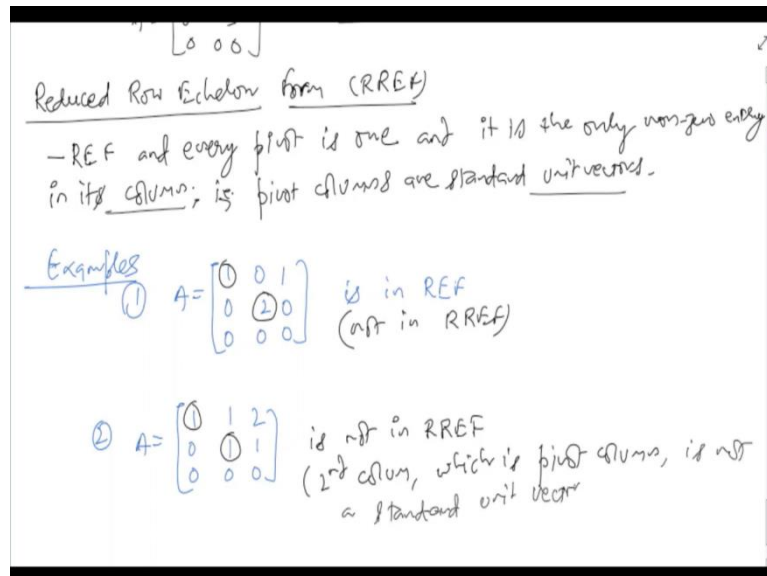 [0 0 0]
Reduced Row Echelon form (RREF)
- REF and every pivot is one and it is the only non-zero entry
in its column; ie; pivot columns are standard unit vectors.
Examples
① A = [1 0 1 is in REF
0 2 0 (not in RREF)
0 0 0]
② A = [1 1 2 is not in RREF
0 1 1 (2nd colum, which is pivot column, is not
0 0 0] a standard unit vector